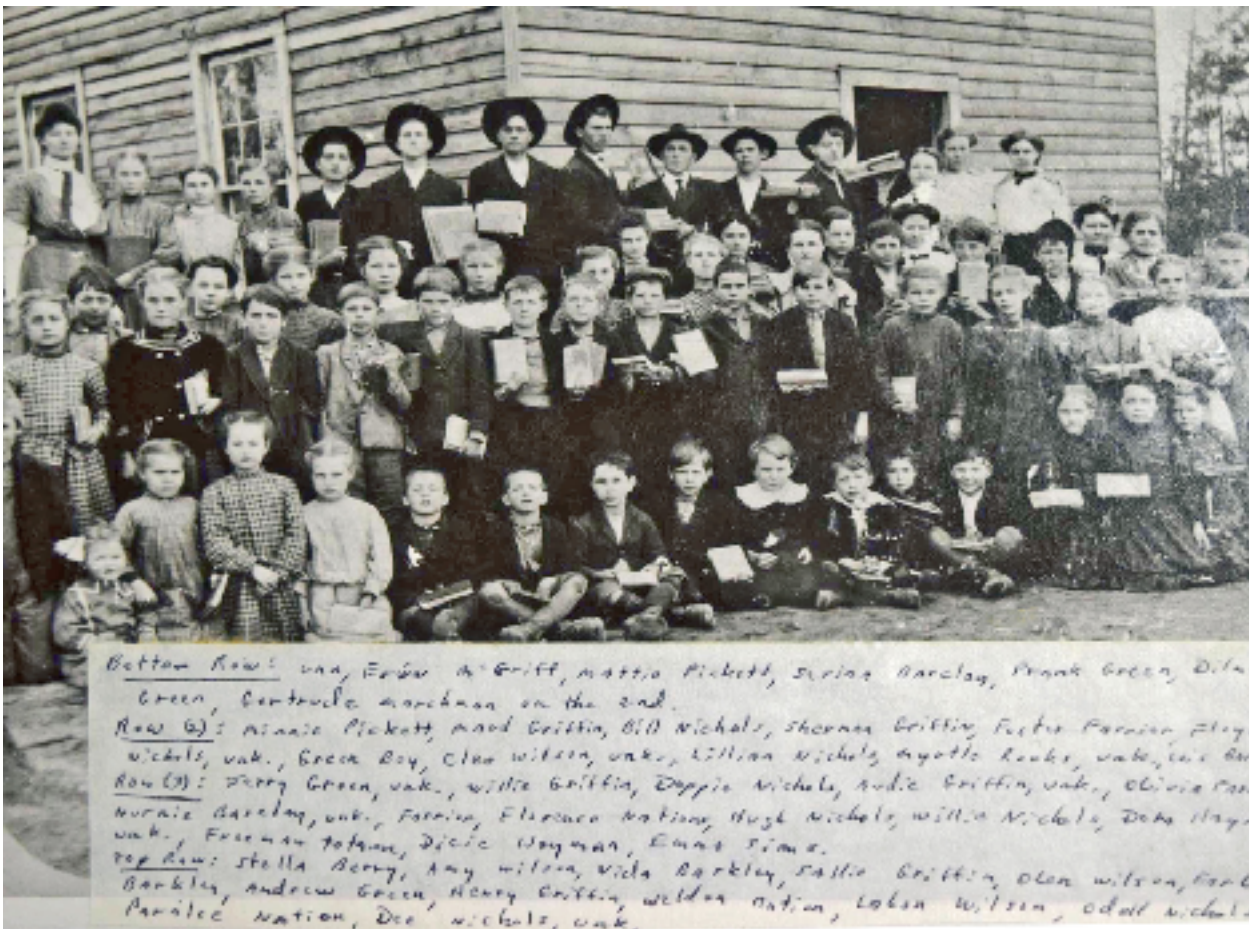 Bottom Row: unk, Ervin McGriff, Mattie Pickett, Barclay, Frank Green,
Green, Gertrude marchman on the end.
Row (2): Minnie Pickett, Maud Griffin, Bill Nichols, Sherman Griffin, Foster Farrior,
Nichols, unk., Green Boy, Cleo Wilson, unk., Lillian Nichols, Myrtle unk.,
Row (3): Jerry Green, unk., Willie Griffin, Nichols, Audie Griffin, unk., Olivia
Barclay, unk., Farrior, Florence Nation, Hugh Nichols, Willie Nichols,
unk., Freeman Dicie Emma Sims.
Top Row: Stella Berry, Amy Wilson, Vida Barkley, Sallie Griffin, Olen Wilson,
Barkley, Andrew Green, Henry Griffin, Weldon Nation, Wilson, Odell
Paralee Nation, Dee Nichols, unk.